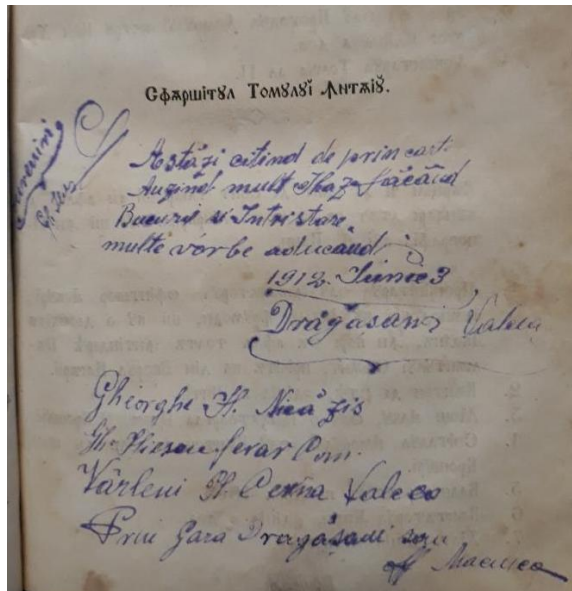 Сфѫршітꙋл Томꙋлꙋї Ꙟнтѫїꙋ.
Astăzi citind de prin cart.
Auzind mult haz făcând
Bucurie si Intristare
multe vorbe aducând
1912. Iunie 3
Drăgășani Valcea
Gheorghe H. Nică zis
Gh. Iliescu ferar Com.
Vârleni Pl. Cerna Valcea
Prin Gara Dragășani sau